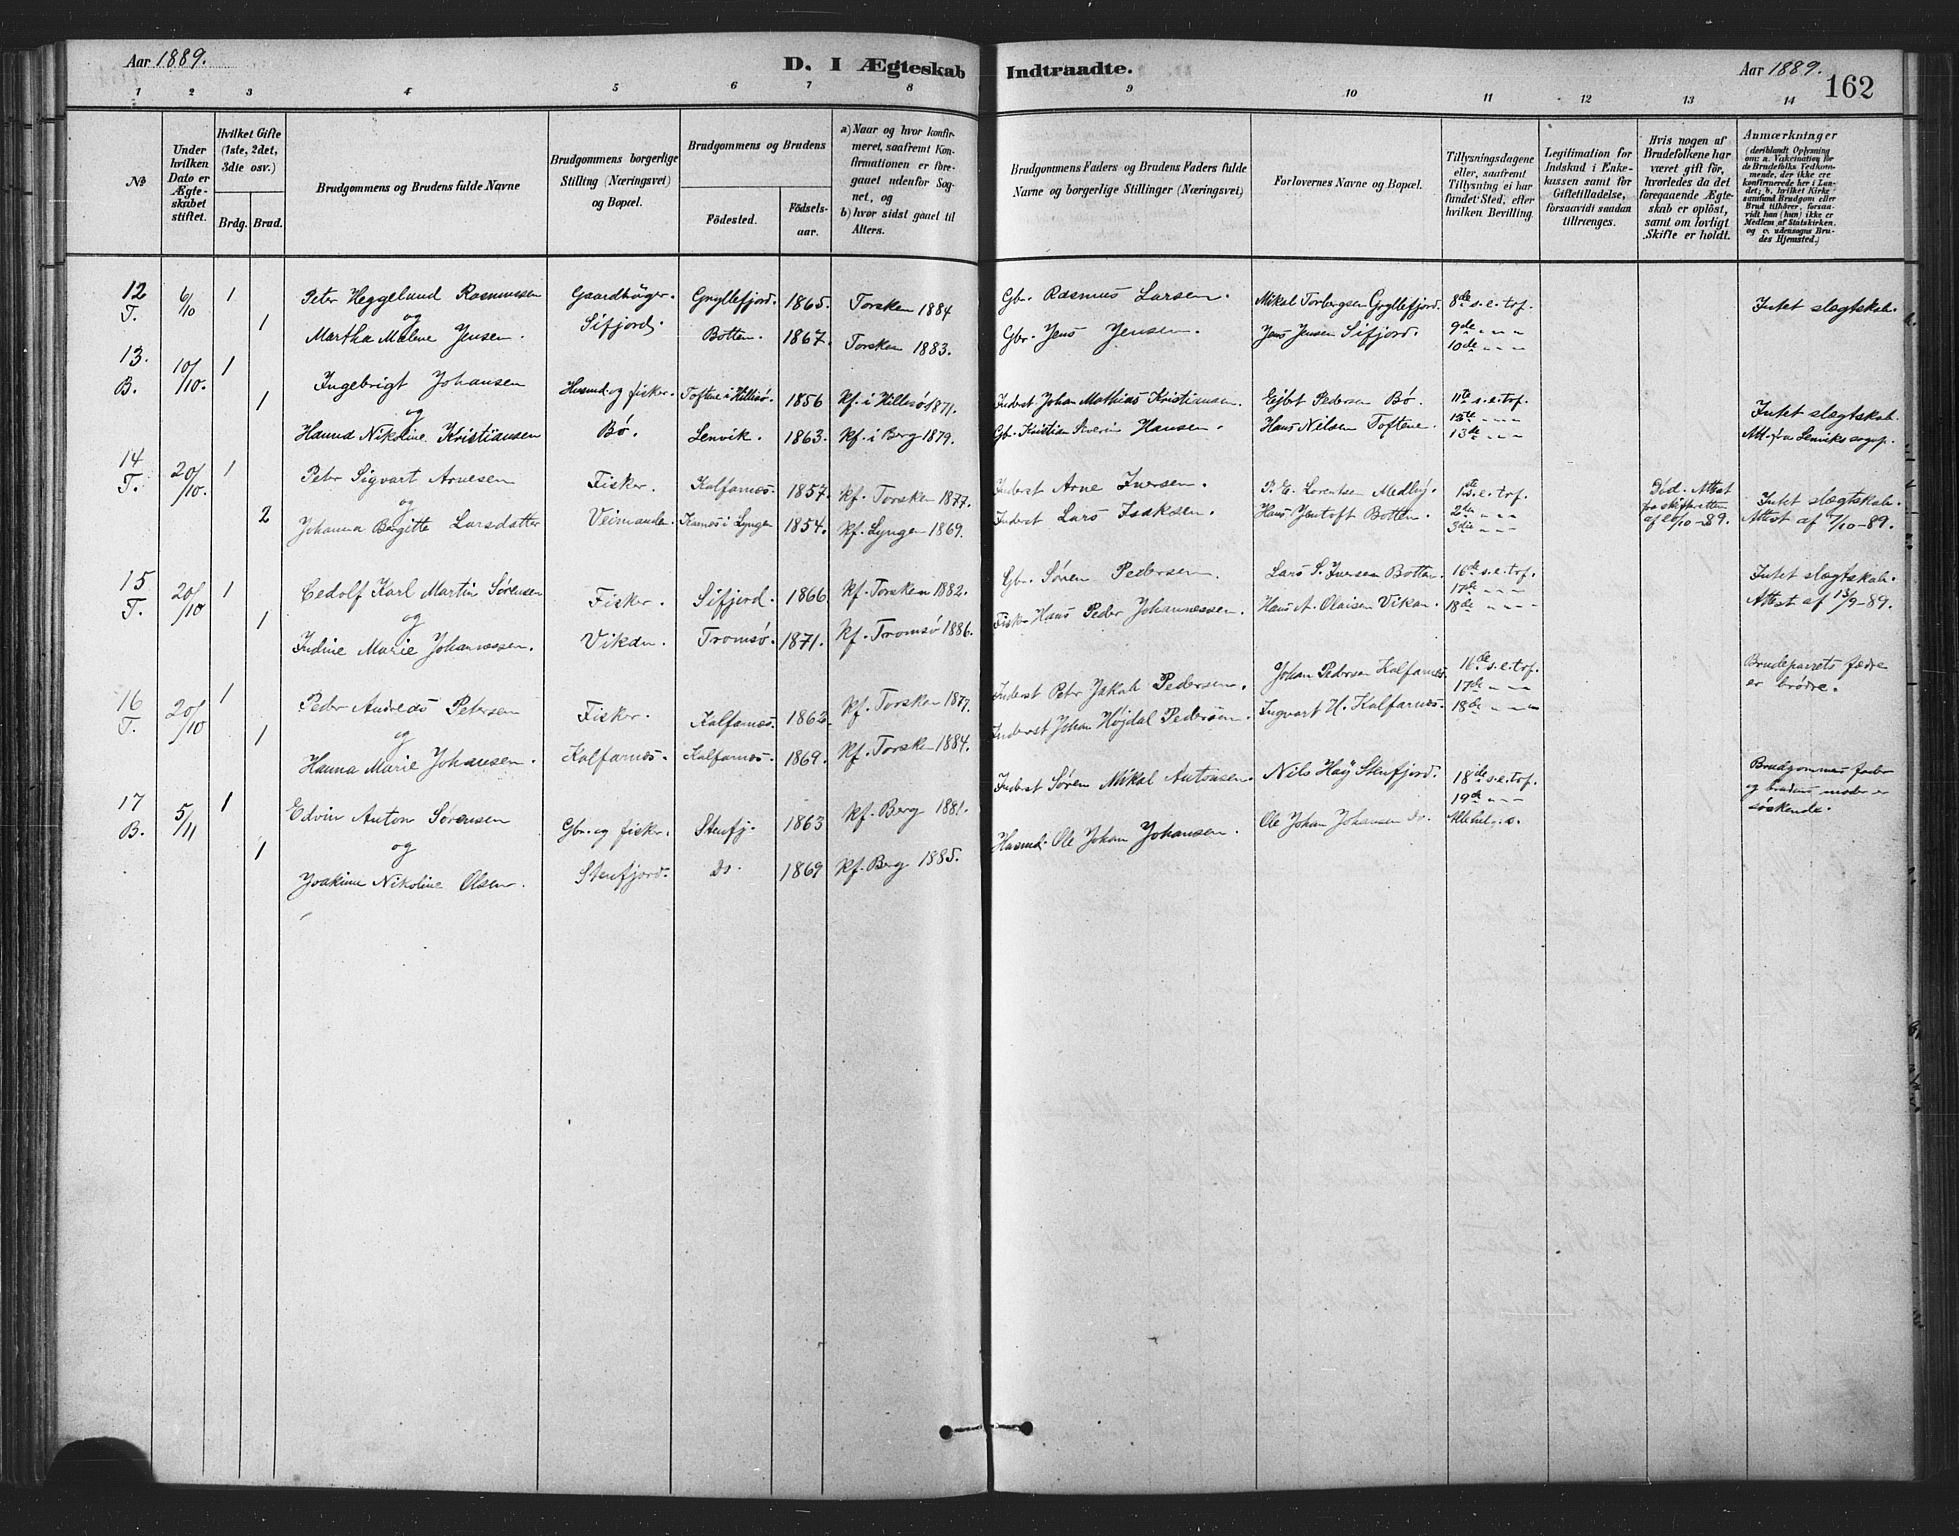 Aar 1889.
D. I Ægteskab Indtraadte.
Aar 1889.
162
1 2 3 4 5 6 7 8 9 10 11 12 13 14
№
Under hvilken Dato er Ægteskabet stiftet.
Hvilket Gifte (1ste, 2det, 3die osv.)
Brdg. Brud.
Brudgommens og Brudens fulde Navne
Brudgommens borgerlige Stilling (Næringsvei) og Bopæl.
Brudgommens og Brudens
Fødested.
Fødselsaar.
a) Naar og hvor konfirmeret, saafremt Konfirmationen er foregaaet udenfor Sognet, og
b) hvor sidst gaaet til Alters.
Brudgommens Faders og Brudens Faders fulde Navne og borgerlige Stillinger (Næringsvei)
Forlovernes Navne og Bopæl.
Tillysningsdagene eller, saafremt Tillysning ei har fundet Sted, efter hvilken Bevilling.
Legitimation for Indskud i Enkekassen samt for Giftetilladelse, forsaavidt saadan tiltrænges.
Hvis nogen af Brudefolkene har været gift før, hvorledes da det foregaaende Ægteskab er opløst, samt om lovligt Skifte er holdt.
Anmærkninger (deriblandt Oplysning om: a. Vakcination for de Brudefolks Vedkommende, der ikke ere konfirmerede her i Landet; b. hvilket Kirkesamfund Brudgom eller Brud tilhører, forsavidt han (hun) ikke er Medlem af Statskirken, og c. udensogns Brudes Hjemsted.)
12 T. 6/10 1 Peter Heggelund Rasmussen Gaardbruger. Gryllefjord. 1865. Torsken 1884 Gbr. Rasmus Larsen. Mikal Torbergsen Gryllefjord. 8de s.e.trf. Intet slægtskab.
og
1 Martha Malene Jensen. Sifjord. Botten. 1867. Torsken 1883. Gbr. Jens Jensen. Jens Jensen Sifjord. 9de " " "
10de " " "
13. B. 10/10. 1 Ingebrigt Johansen Husmd. og fisker. Toftene i Hillesø. 1856 Kf. i Hillesø 1871. Inderst Johan Mathias Kristiansen. Ejbet Pedersen Bø. 11te s.e.trf. Intet slægtskab.
og
1 Hanna Nikoline Kristiansen Bø. Lenvik. 1863. Kf. i Berg 1879. Gbr. Kristian Severin Hansen. Hans Nilsen Toftene. 12te " " " Att. fra Lenviks sogn.
13de " " "
14 T. 20/10. 1 Peter Sigvart Arnesen Fisker. Kalfarnæs. 1857. Kf. Torsken 1877. Inderst Arne Iversen. P. E. Lorentsen Medby. 1ste s.e.trf. Død. Attest Intet slægtskab.
og
2 Johanna Bergitte Larsdatter Veimanden. Karnæs i Lyngen 1854. Kf. Lyngen 1869. Inderst Lars Isaksen. Hans Jentoft Botten. 2den " " " fra skifteretten Attest af 7/10-89.
3die " " " af 20/10-89.
15 T. 20/10 1 Cedolf Karl Martin Sørensen Fisker. Sifjord. 1866 Kf. Torsken 1882. Gbr. Søren Pedersen. Lars S. Iversen Botten. 16de s.e.trf. Intet slægtskab.
og
1 Indine Marie Johannessen. Vikan. Tromsø. 1871. Kf. Tromsø 1886. Fisker Hans Peder Johannessen. Hans A. Olaisen Vikan. 17de " " " Attest af 13/9-89.
18de " " "
16 T. 20/10 1 Peder Andreas Petersen Fisker. Kalfarnæs. 1862. Kf. Torsken 1877. Inderst Petr Jakob Pedersen. Johan Pedersen Kalfarnæs. 16de s.e.trf. Brudeparrets fædre
og
1 Hanna Marie Johansen. Kalfarnæs. Kalfarnæs. 1869. Kf. Torsken 1884. Inderst Johan Højdal Pedersen. Ingvart H. Kalfarnæs. 17de " " " er brødre.
18de " " "
17 B. 5/11 1 Edvin Anton Sørensen Gbr. og fisker. Stenfj. 1863 Kf. Berg 1881. Inderst Søren Mikal Antonsen. Nils Høy Stenfjord. 18de s.e.trf. Brudgommens fader
og
1 Joakine Nikoline Olsen. Stenfjord. Do. 1869 Kf. Berg 1885. Husmd. Ole Johan Johansen. Ole Johan Johansen do. 19de " " " og brudens moder er
Allehelg.s. søskende.